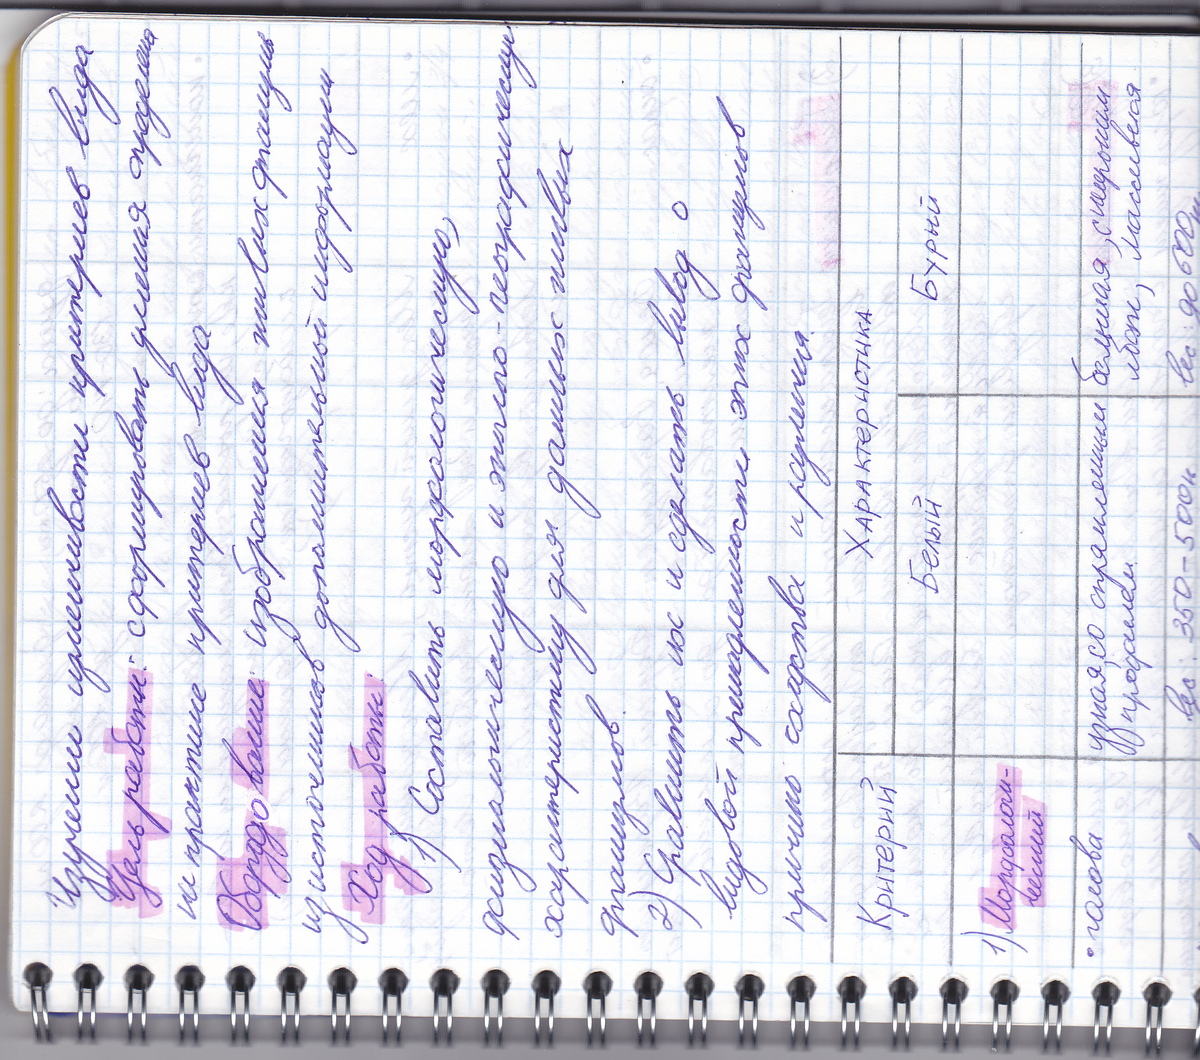 Изучении изменчивости критериев вида
Цель работы: сформировать умения определения
на практике критериев вида
Оборудование: изображения живых организмов
из источников дополнительной информации
Ход работы:
1) Составить морфологическую,
физиологическую и эколого-географическую
характеристику для данных живых
организмов.
2) Сравнить их и сделать вывод о
видовой принадлежности этих организмов
причино сходства и различия.
Критерий Характеристика
Белый Бурый
1) Морфологический
• голова узкая, со спрямленным профилем большая, с широким лбом, массивная
вес: 350-500кг вес: до 600